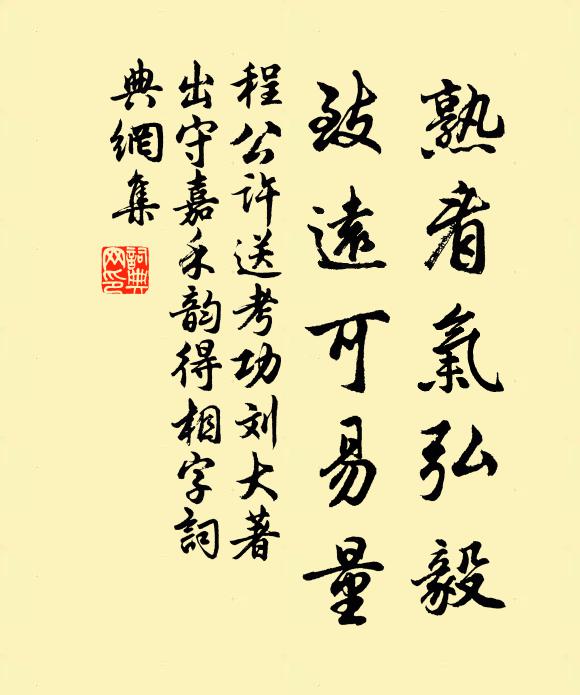 熟看氣弘毅
致遠可易量
程公許送考功刘大著
出守嘉禾韵得相字詞
典網集
詞典網印